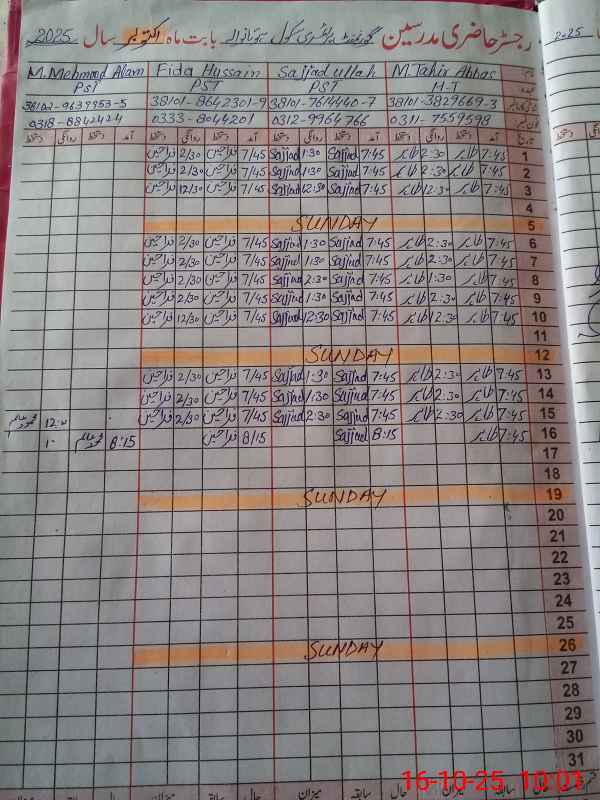 رجسٹر حاضری مدرسین گورنمنٹ پرائمری سکول بابت ماہ اکتوبر سال 2025
M. Tahir Abbas Sajjad ullah Fida Hussain M. Mehmood Alam
H-T PST PST PST
38101-3829669-3 38101-7614440-7 38101-8642301-9 38102-9639953-5
0311-7559598 0312-9964766 0333-8044201 0318-8842424
تاریخ آمد دستخط روانگی دستخط آمد دستخط روانگی دستخط آمد دستخط روانگی دستخط آمد دستخط روانگی دستخط
1 7:45 طاہر 2:30 طاہر 7:45 Sajjad 1:30 Sajjad 7/45 فداحسین 2/30 فداحسین
2 7:45 طاہر 2:30 طاہر 7:45 Sajjad 1:30 Sajjad 7/45 فداحسین 2/30 فداحسین
3 7:45 طاہر 12:30 طاہر 7:45 Sajjad 12:30 Sajjad 7/45 فداحسین 12/30 فداحسین
4
5 SUNDAY
6 7:45 طاہر 2:30 طاہر 7:45 Sajjad 1:30 Sajjad 7/45 فداحسین 2/30 فداحسین
7 7:45 طاہر 2:30 طاہر 7:45 Sajjad 1:30 Sajjad 7/45 فداحسین 2/30 فداحسین
8 7:45 طاہر 1:30 طاہر 7:45 Sajjad 2:30 Sajjad 7/45 فداحسین 2/30 فداحسین
9 7:45 طاہر 2:30 طاہر 7:45 Sajjad 1:30 Sajjad 7/45 فداحسین 2/30 فداحسین
10 7:45 طاہر 12:30 طاہر 7:45 Sajjad 12:30 Sajjad 7/45 فداحسین 12/30 فداحسین
11
12 SUNDAY
13 7:45 طاہر 2:30 طاہر 7:45 Sajjad 1:30 Sajjad 7/45 فداحسین 2/30 فداحسین
14 7:45 طاہر 2:30 طاہر 7:45 Sajjad 1:30 Sajjad 7/45 فداحسین 2/30 فداحسین
15 7:45 طاہر 2:30 طاہر 7:45 Sajjad 2:30 Sajjad 7/45 فداحسین 2/30 فداحسین محمود عالم
16 7:45 طاہر 8:15 Sajjad 8/15 فداحسین 8:15 محمود عالم
17
18
19 SUNDAY
20
21
22
23
24
25
26 SUNDAY
27
28
29
30
31
حال سابقہ میزان حال سابقہ میزان حال سابقہ میزان
16-10-25 10:01
2025